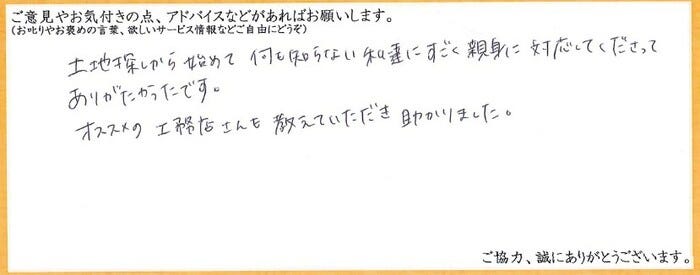 ご意見やお気付きの点、アドバイスなどがあればお願いします。
(お叱りやお褒めの言葉、欲しいサービス情報などご自由にどうぞ)
土地探しから始めて 何も知らない私達にすごく親身に対応してくださって
ありがたかったです。
オススメの工務店さんも教えていただき助かりました。
ご協力、誠にありがとうございます。